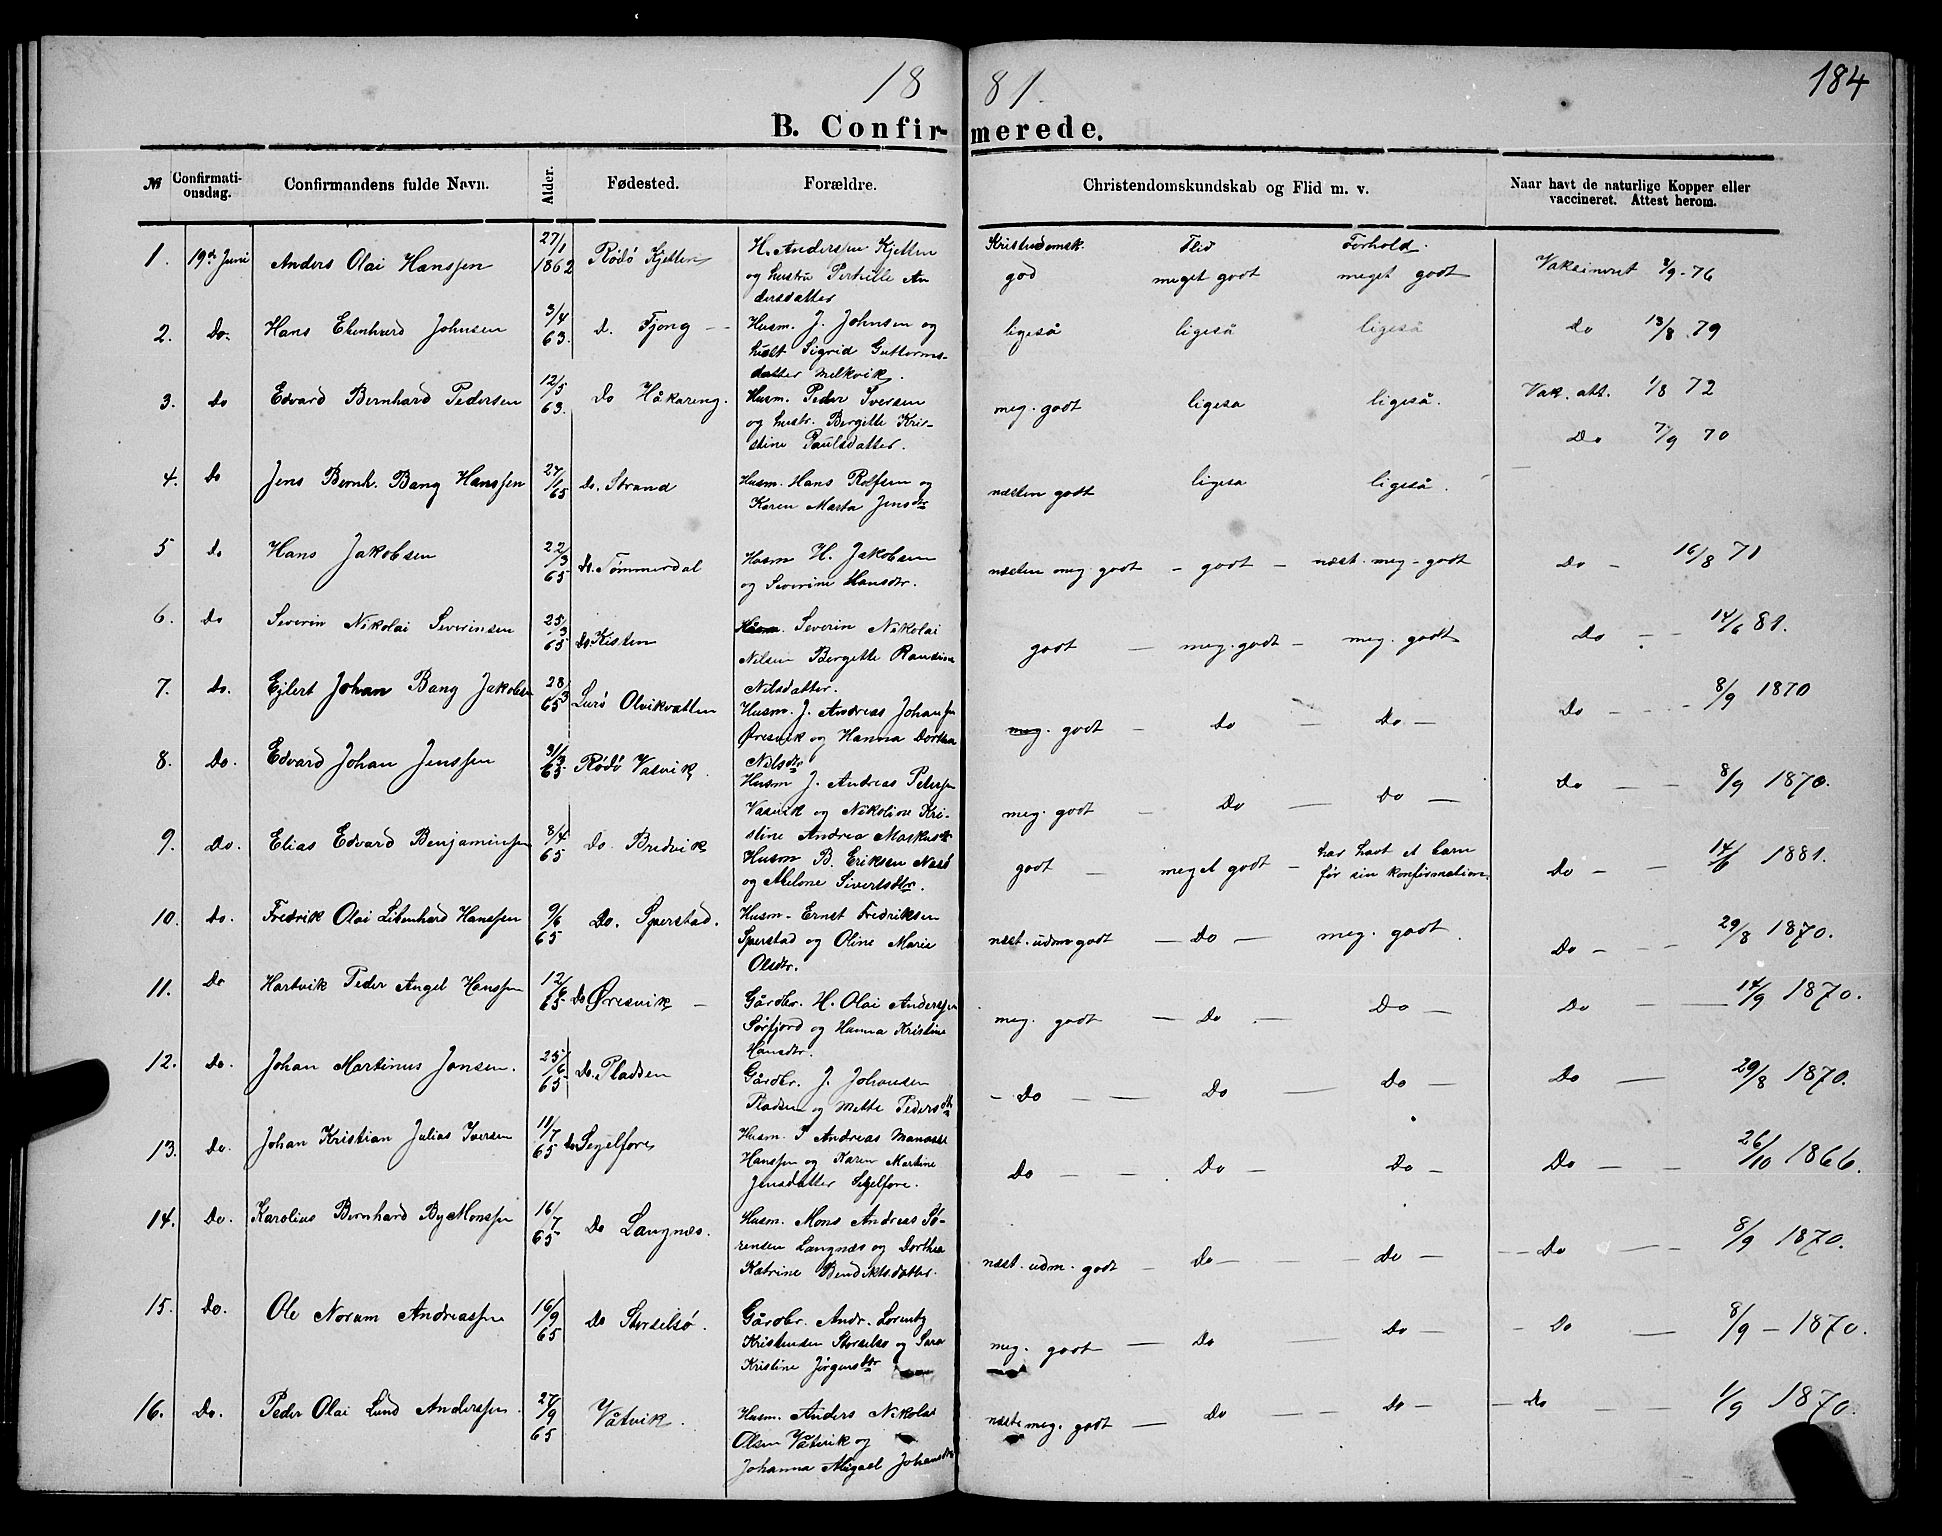 1881.
184
B. Confirmerede.
№ Confirmationsdag. Confirmandens fulde Navn. Alder. Fødested. Forældre. Christendomskundskab og Flid m. v. Naar havt de naturlige Kopper eller vaccineret. Attest herom.
Kristendomsk. Flid Forhold.
1. 19de Juni Anders Olai Hanssen 27/1 1862 Rødø Kjetten H. Andersen Kjetten
og hustru Pernille An
dersdatter
god meget godt meget godt Vaksineret 8/9-76
2. Do. Hans Ebenhard Johnsen 3/4 63. D. Fjong Husm. J. Johnsen og
Sigrid Guttorms-
datter Melkvik.
ligeså ligeså ligeså Do 13/8.79
3. Do Edvard Bernhard Pedersen 12/5 63. Do Håkareng. Husm. Peder Iversen
og hustr. Bergitte Kri-
stine Paulsdatter.
meg. godt ligesa ligeså. Vak. att. 1/8 72
Do 7/9 70
4. Do Jens Bernh. Bang Hanssen 27/1 65 Do. Strand Husm. Hans Rolfsen og
Karen Marta Jensdtr
næsten godt ligesa ligeså.
5 Do Hans Jakobsen 22/3 65 Do. Tømmerdal Husm H. Jakobsen
og Severine Hansdtr.
næsten meg. godt - godt - næst. meg - godt Do - 16/8 71
6. Do Severin Nikolai Severinsen 25/3 65 Do. Kisten Husm. Severin Nikolai
Nilsen Bergitte
Nilsdatter.
godt - meg. godt - meg. godt Do - - 14/6 81.
7. Do. Ejlert Johan Bang Jakobsen 28/3 65 Lurø Olvikvatten Husm. J. Andreas Johansen
Øresvik og Hanna Dorthea
Nilsdtr
meg. godt - Do - Do - Do - - 8/9 1870
8. Do. Edvard Johan Jenssen 31/3 65 Rødø Vasvik. Husm J. Andreas Petersen
Vasvik og Nikoline Kri-
stine Andrea Markusdtr
meg. godt - Do - Do - Do - - 8/9 1870.
9. Do. Elias Edvard Benjaminsen 8/4 65 Do. Bredvik Husm B. Eriksen
og Sivertsdtr.
godt - meget godt - har havt et barn
før sin konfirmation. Do - - 14/6 1881.
10. Do. Fredrik Olai Libenhard Hanssen 9/6 65 Do. Sperstad. Husm- Ernst Fredriksen
Sperstad og Oline Marie
Olsdtr.
næst. udm godt - Do - meg. godt. Do - - 29/8 1870.
11. Do Hartvik Peder Angel Hanssen 12/6 65 Do Øresvik - Gårdbr. H. Olai Anderssen
Sørfjord og Hanna Kristine
Hansdtr.
meg. godt - Do - Do - Do - 14/9 1870.
12. Do. Johan Martinus Jonsen. 25/6 65 Do. Pladsen Gårdbr. J. Johansen
Pladsen og Mette Pedersdtr
- Do - - Do - Do - Do - 29/8 1870.
13. Do. Johan Kristian Julias Iversen 11/7 65 Do Segelfore Husm. I Andreas Manasse
Hanssen og Karen Martine
Jensdatter Segelfore.
Do - - Do - Do - Do - - 26/10 1866.
14. Do. Karolius Bernhard By Monssen 16/7 65 Do Langnæs. Husm. Mons Andreas Sø-
rensen Langnæs og Dorthea
Katrine Bendiktsdatter.
næst. udm. godt - Do - - Do - - Do - - 8/9 1870.
15. Do. Ole Norum Andreassen 16/9 65 Do Storselsø. Gårdbr. Andr. Lorentz
Kristensen Storselsø og Sara
Kristine Jørgensdtr
meg. godt - Do - Do - - Do - 8/9 - 1870.
16. Do. Peder Olai Lund Anderssen. 27/9 65 Våtvik. Husm. Anders Nikolai
Olsen Våtvik og
Johanna Abigael Johansdtr
næste meg. godt - Do - - Do - - Do - - 1/9 1870.